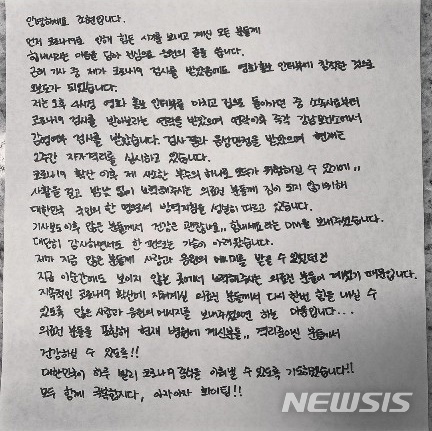 안녕하세요 조현입니다.
먼저 코로나19로 인해 힘든 시기를 보내고 계신 모든 분들께
힘내시라는 마음을 담아 진심으로 응원의 글을 씁니다.
근래 기사 중 제가 코로나19 검사를 받았음에도 영화홍보 인터뷰에 참석한 것으로
보도가 되었습니다.
저는 오후 4시경 영화 홍보 인터뷰를 마치고 집으로 돌아가던 중 소속사로부터
코로나19 검사를 받아보라는 연락을 받았으며 연락 이후 즉각 강남보건소에서
감염여부 검사를 받았습니다. 검사결과 음성판정을 받았으며 현재는
2주간 자가격리를 실시하고 있습니다.
코로나19 확산 이후 제 사소한 부주의 하나로 모두가 위험해질 수 있기에..
사활을 걸고 밤낮 없이 노력해주시는 의료진 분들께 짐이 되지 않기위해
대한민국 국민의 한 명으로서 방역지침을 성실히 따르고 있습니다.
기사보도이후 많은 분들께서 건강은 괜찮냐.. 힘내세요 라는 DM을 보내주셨습니다.
대단히 감사하면서도 한 편으로는 가슴이 아려왔습니다.
제가 지금 많은 분들께 사랑과 응원의 메시지를 받을 수 있었던건
지금 이순간에도 보이지 않는 곳에서 노력해주시는 의료진 분들이 계셨기 때문입니다.
지속적인 코로나19 확산에 지쳐계실 의료진 분들께서 다시 한번 힘을 내실 수
있도록 많은 사랑과 응원의 메시지를 보내주셨으면 하는 마음입니다...
의료진 분들을 포함해 현재 병원에 계신분들.. 격리중이신 분들께서
건강하실 수 있도록!!
대한민국이 하루 빨리 코로나19 종식을 이뤄낼 수 있도록 기도하겠습니다!!
모두 함께 극복합시다, 아자아자 화이팅!!
NEWSIS